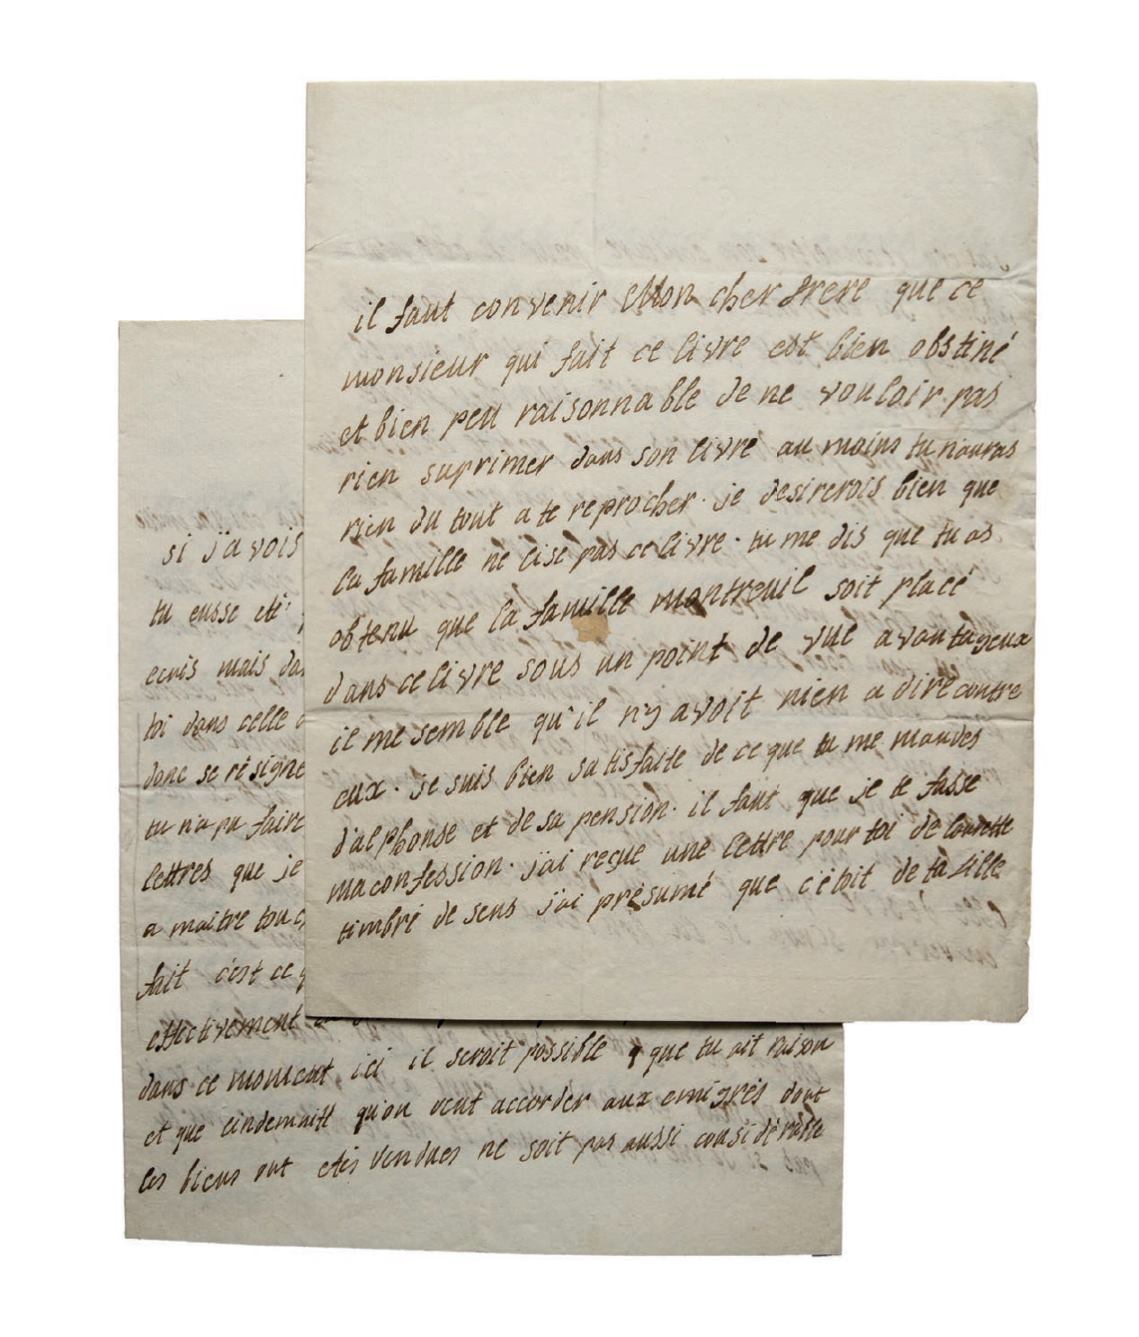 il faut convenir Mon cher frere que ce
monsieur qui fait ce livre est bien obstiné
et bien peu raisonnable de ne vouloir pas
rien suprimer dans son livre au moins tu nauras
rien du tout a te reprocher. je desirerois bien que
la famille ne lise pas ce livre. tu me dis que tu as
obtenu que la famille montreuil soit placé
dans ce livre sous un point de vue avantageux
il me semble qu'il n'y avoit rien a dire contre
eux. je suis bien satisfaite de ce que tu me mandes
d'alphonse et de sa pension. il faut que je te fasse
ma confession. j'ai reçue une lettre pour toi de
timbré de sens j'ai présumé que c'étoit de ta fille
si j'avois
tu eusse eté
ecris mais da
toi dans celle
donc se résigne
tu n'a pu faire
lettres que je
a maitre touc
fait c'est ce q
effectivement
dans ce moment ici il seroit possible que tu ait raison
et que l'indemnité qu'on veut accorder aux emigrés dont
les biens ont etés vendues ne soit pas aussi considérable